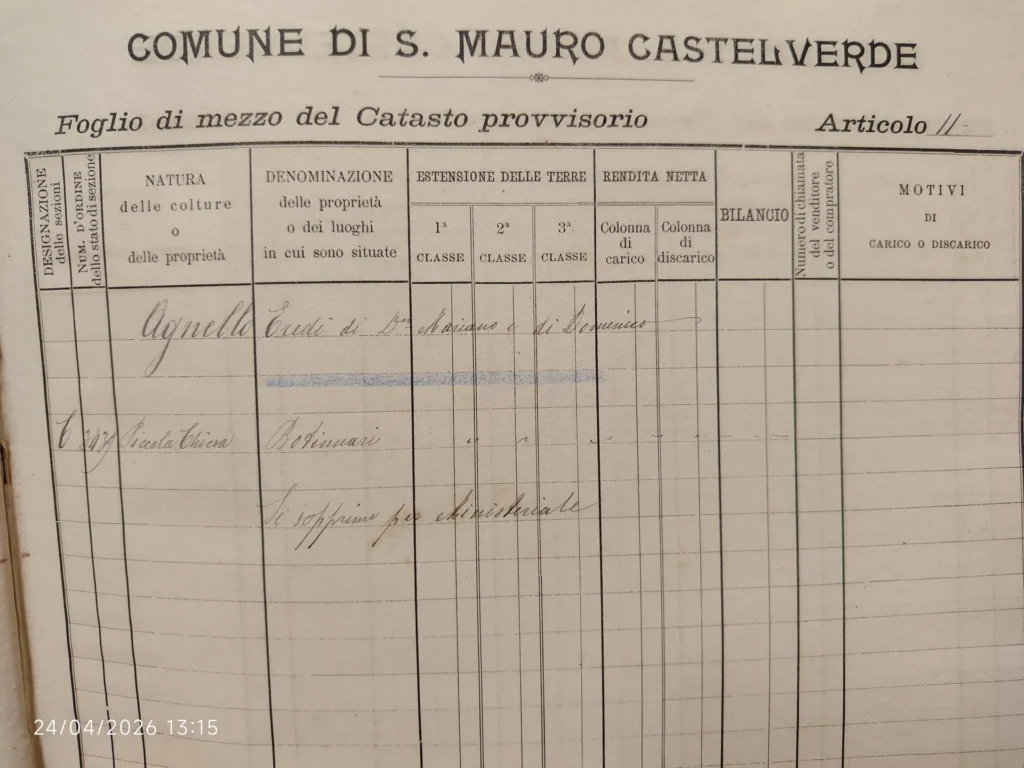 COMUNE DI S. MAURO CASTELVERDE
Foglio di mezzo del Catasto provvisorio
Articolo 11
DESIGNAZIONE
delle sezioni
NUM. D'ORDINE
dello stato di sezione
NATURA
delle colture
o
delle proprietà
DENOMINAZIONE
delle proprietà
o dei luoghi
in cui sono situate
ESTENSIONE DELLE TERRE
1ª
CLASSE
2ª
CLASSE
3ª
CLASSE
RENDITA NETTA
Colonna
di
carico
Colonna
di
discarico
BILANCIO
Numero di chiamata
del venditore
o del compratore
MOTIVI
DI
CARICO O DISCARICO
Agnello Eredi di Dn Mariano e di Domenico
C 2439 Piccola Chiesa
Si sopprime per Ministeriale
24/04/2026 13:15